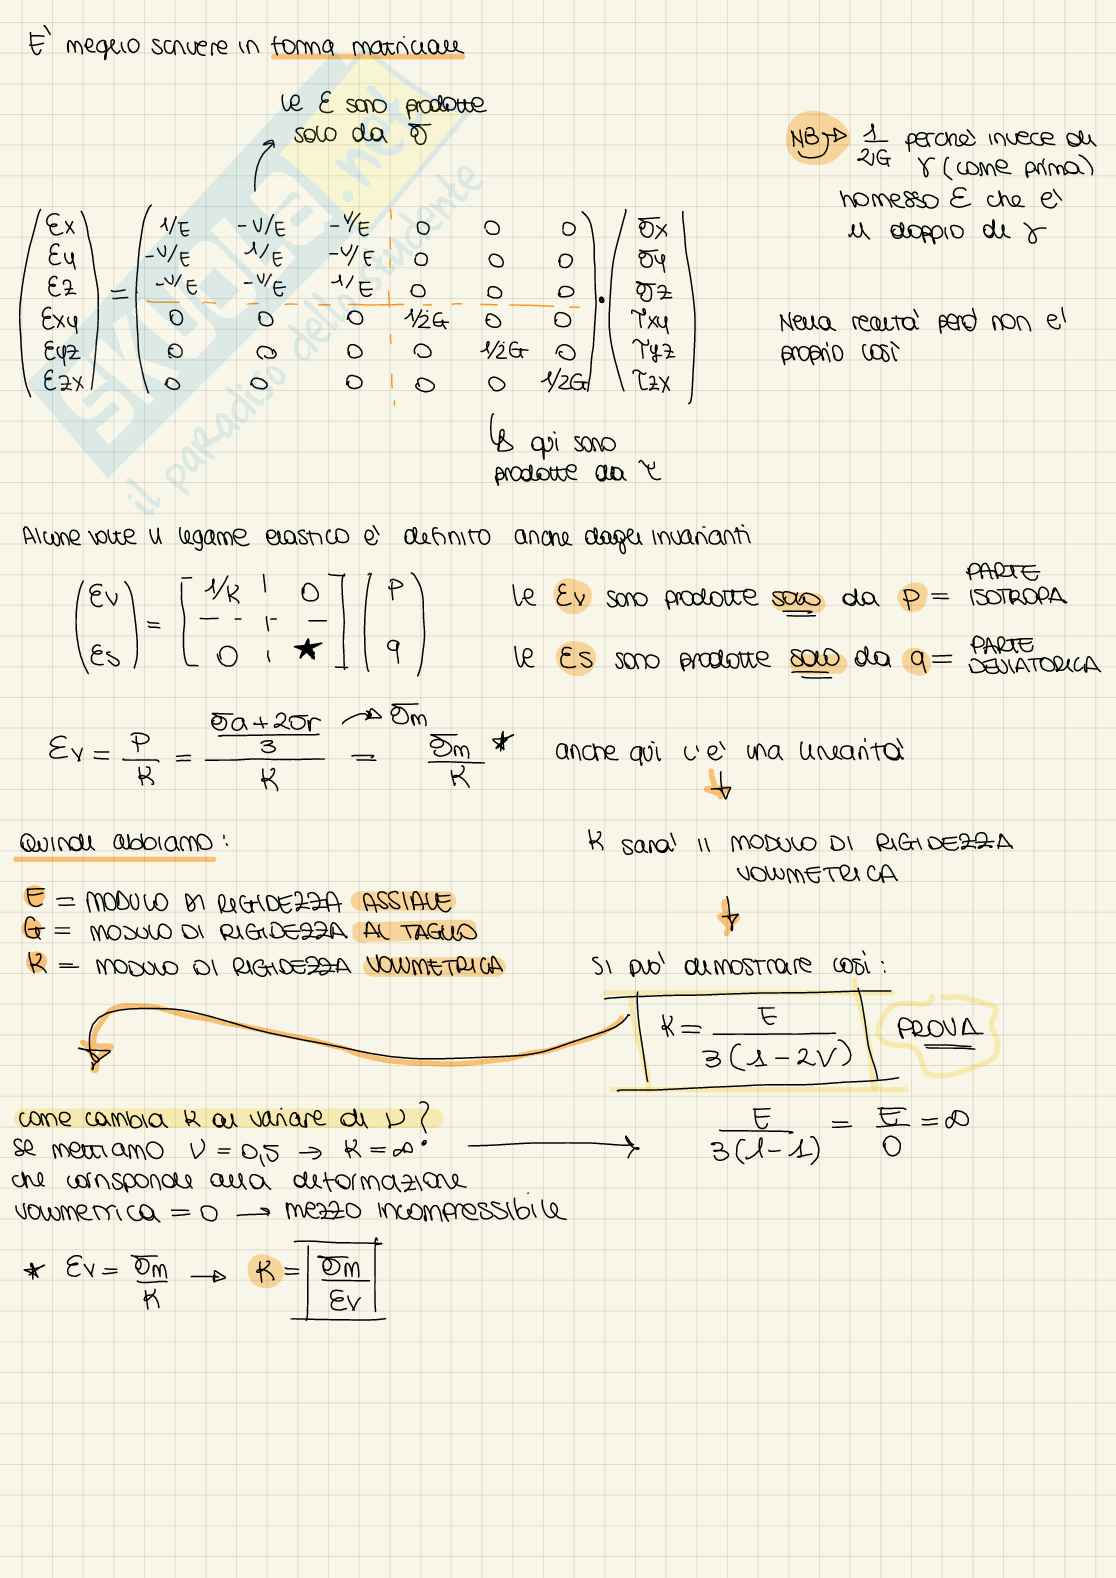 E' meglio scrivere in forma matriciale
le ε sono prodotte
solo da σ
NB → 1/2G perché invece di
γ (come prima)
ho messo ε che e'
il doppio di γ
εx 1/E -ν/E -ν/E 0 0 0 σx
εy -ν/E 1/E -ν/E 0 0 0 σy
εz = -ν/E -ν/E 1/E 0 0 0 · σz
εxy 0 0 0 1/2G 0 0 τxy
εyz 0 0 0 0 1/2G 0 τyz
εzx 0 0 0 0 0 1/2G τzx
Nella realta' però non e'
proprio così
↳ qui sono
prodotte da τ
Alcune volte il legame elastico e' definito anche dagli invarianti
εv 1/K 0 p
=
εs 0 ★ q
le εv sono prodotte solo da p = PARTE ISOTROPA
le εs sono prodotte solo da q = PARTE DEVIATORICA
εv = p/K = ((σa + 2σr)/3)/K → σm = σm/K * anche qui c'e' una linearita'
Quindi abbiamo:
E = MODULO DI RIGIDEZZA ASSIALE
G = MODULO DI RIGIDEZZA AL TAGLIO
K = MODULO DI RIGIDEZZA VOLUMETRICA
K sara' il MODULO DI RIGIDEZZA
VOLUMETRICA
SI puo' dimostrare così:
K = E/3(1-2ν) PROVA
come cambia K al variare di ν?
se mettiamo ν = 0,5 → K = ∞ →
E/3(1-1) = E/0 = ∞
che corrisponde alla deformazione
volumetrica = 0 → mezzo incompressibile
* εv = σm/K → K = σm/εv
SKUOLA.net
il paradiso dello studente